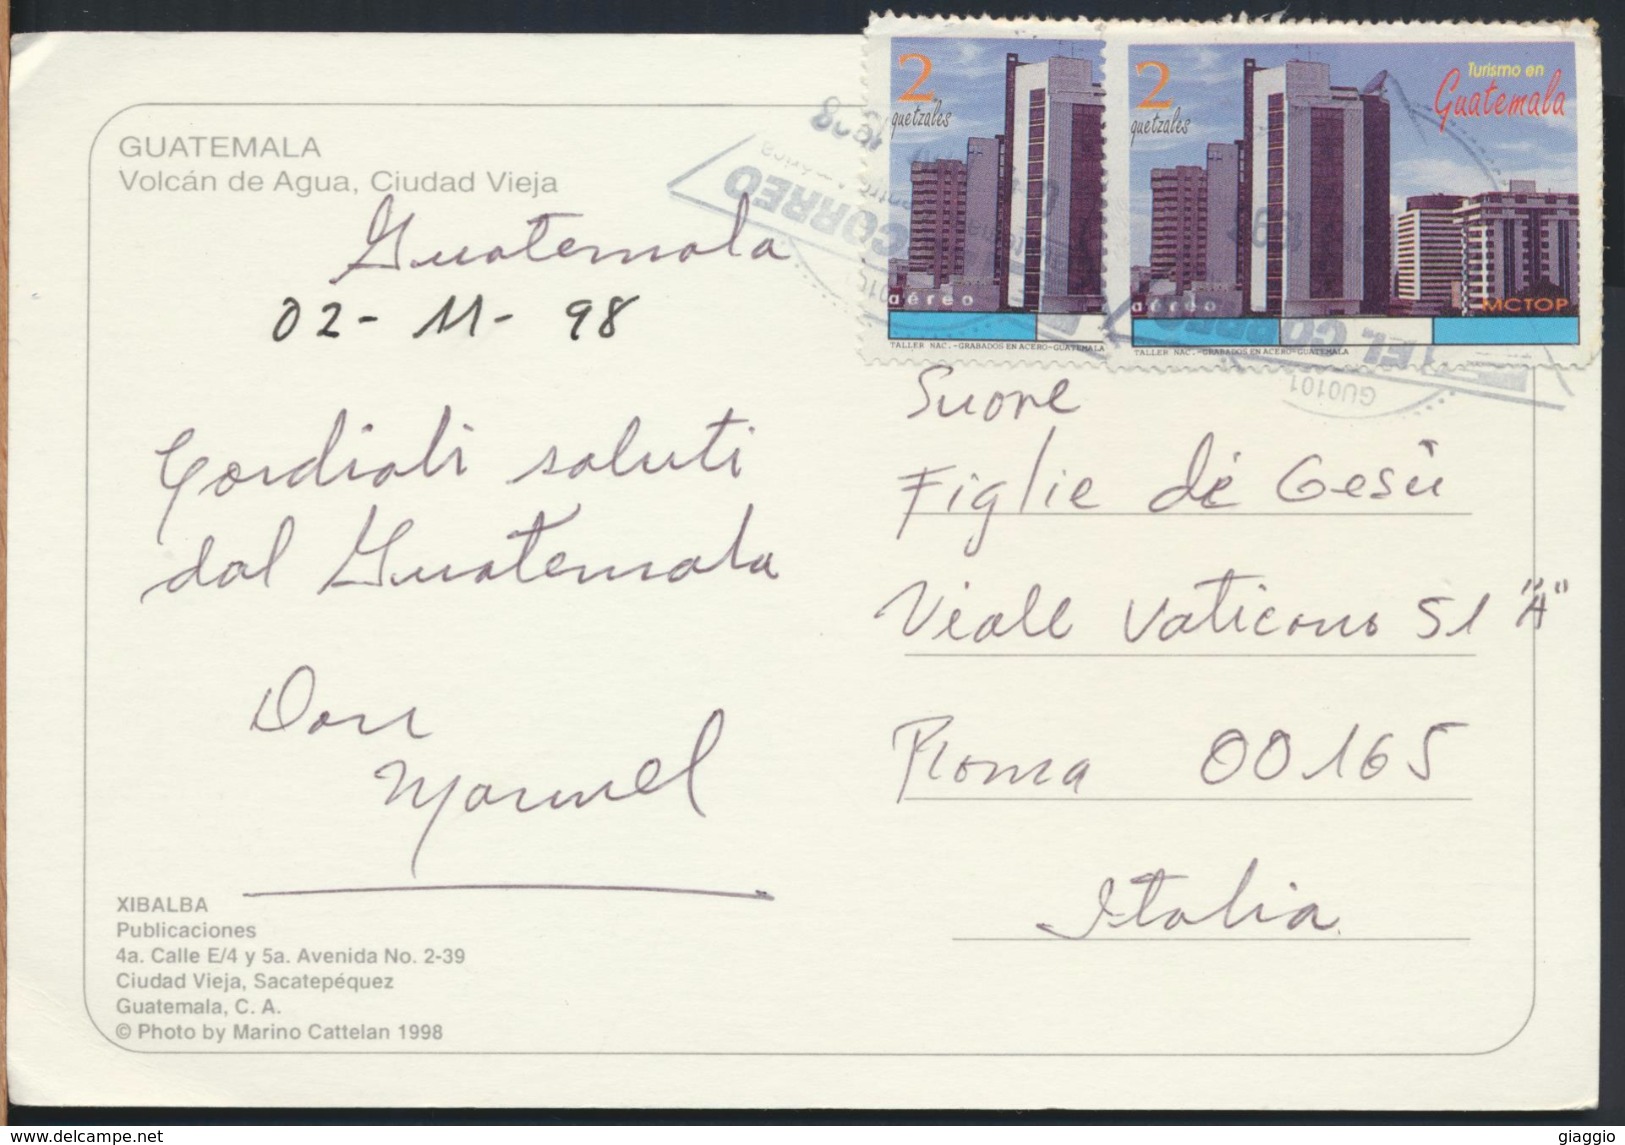 GUATEMALA
Volcán de Agua, Ciudad Vieja
Guatemala
02-11-98
Cordiali saluti
dal Guatemala
Don
Manuel
XIBALBA
Publicaciones
4a. Calle E/4 y 5a. Avenida No. 2-39
Ciudad Vieja, Sacatepéquez
Guatemala, C. A.
© Photo by Marino Cattelan 1998
2
quetzales
aéreo
TALLER NAC.-GRABADOS EN ACERO-GUATEMALA
2
quetzales
Turismo en
Guatemala
aéreo
MCTOP
TALLER NAC.-GRABADOS EN ACERO-GUATEMALA
EL CORREO
GU0101
CORREO
Suore
Figlie di Gesù
Viale Vaticano 51 "A"
Roma 00165
Italia
giaggio